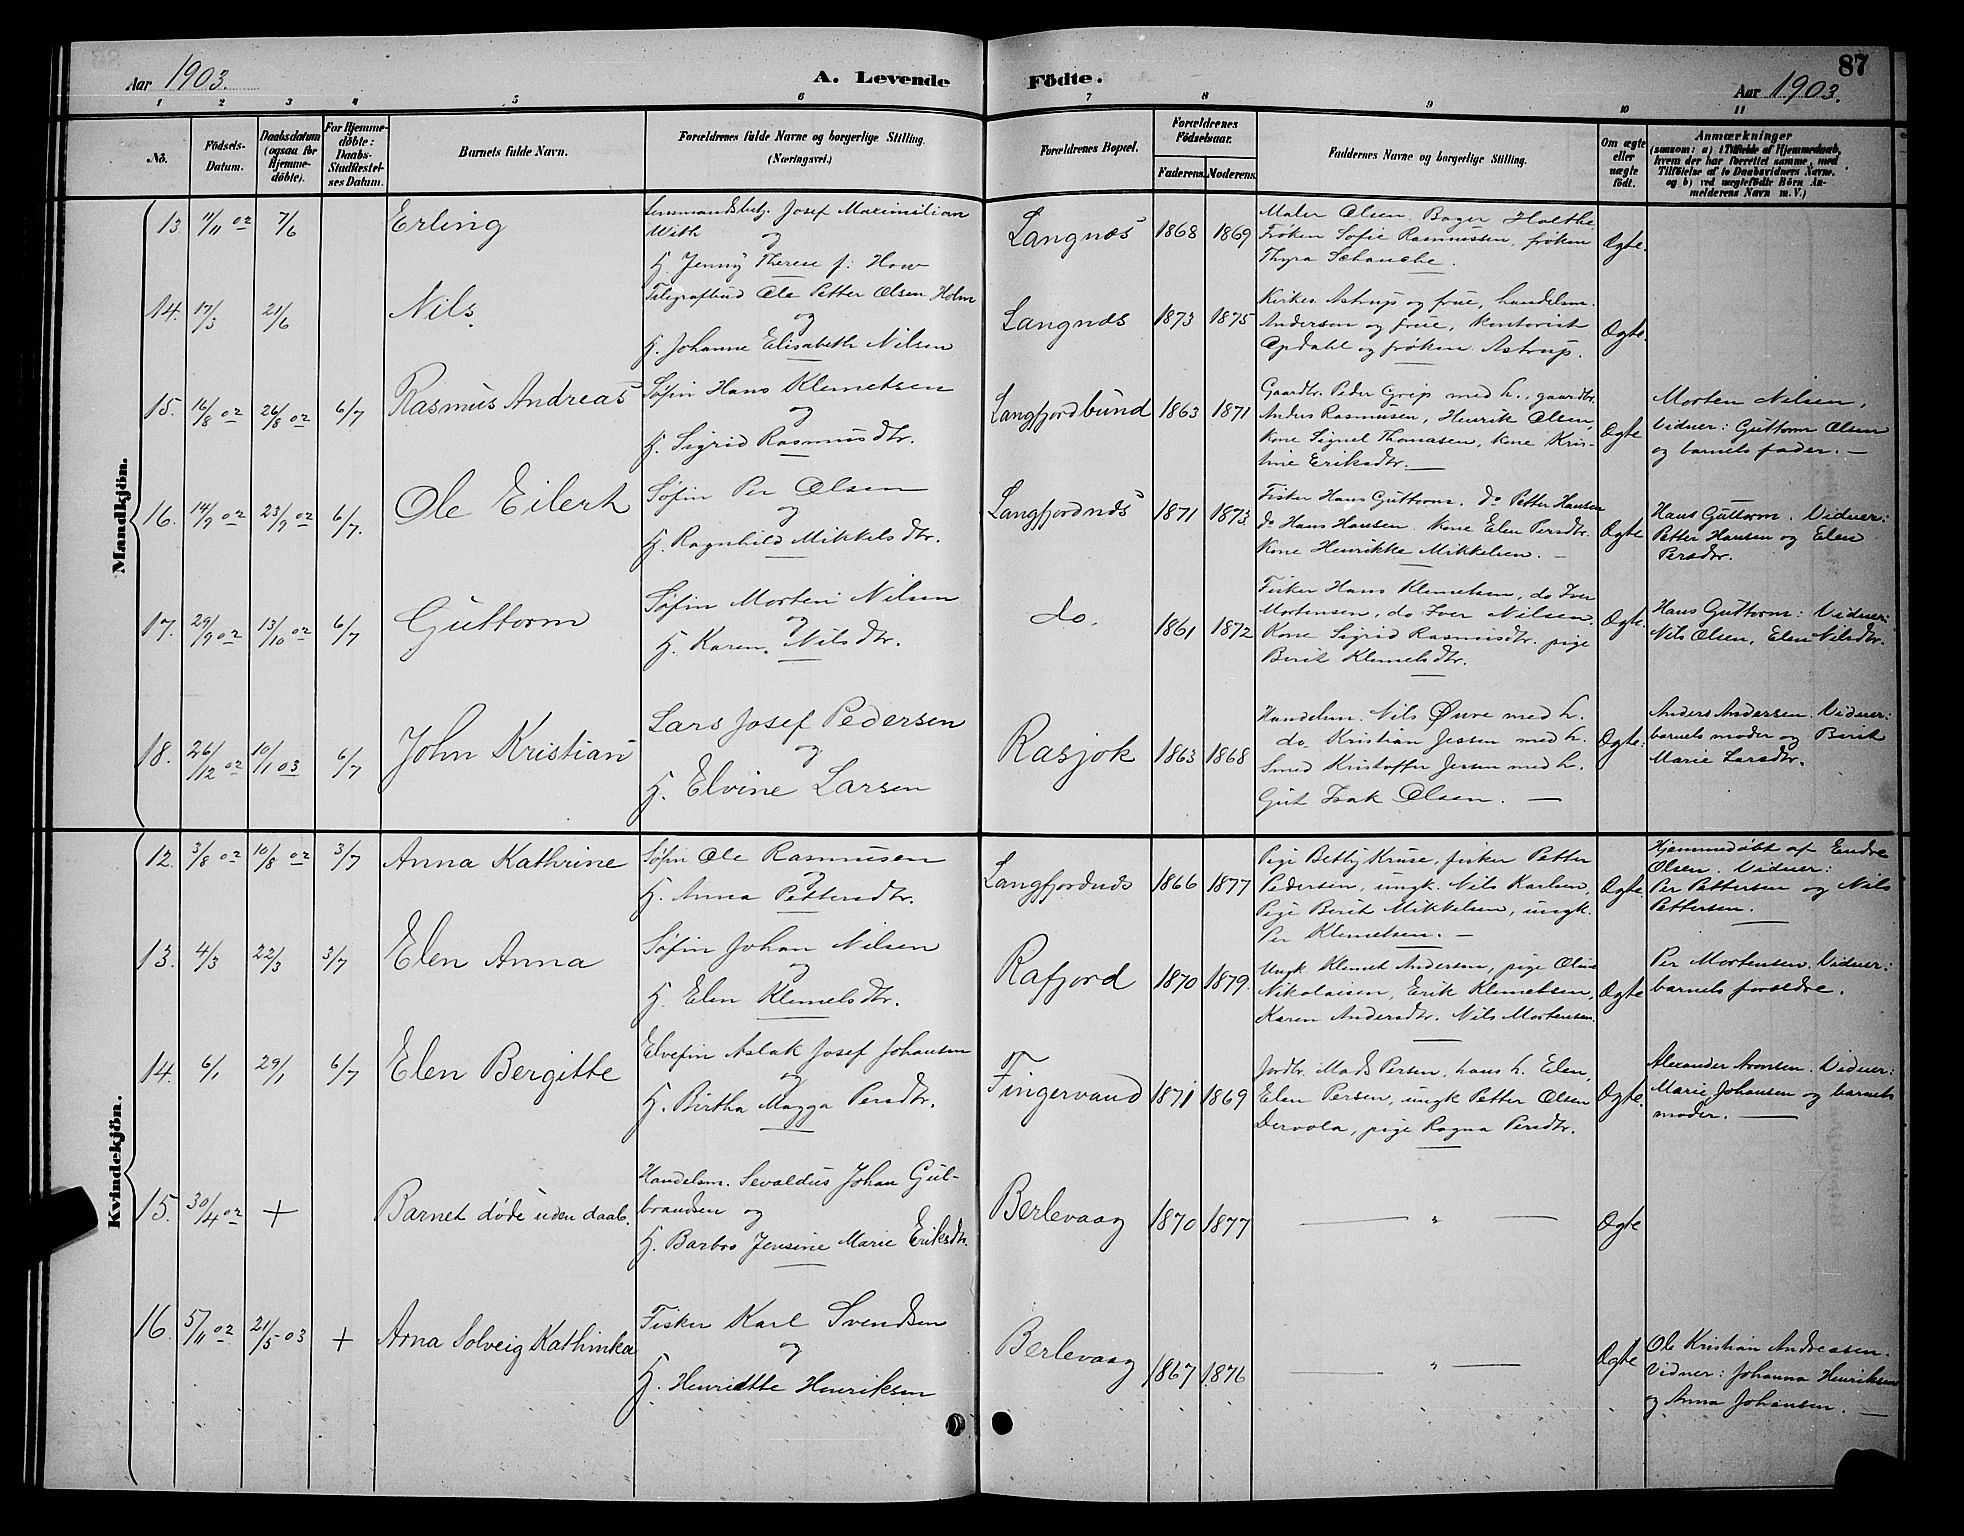 87
Aar 1903.
A. Levende
Födte.
Aar 1903.
1 2 3 4 5 6 7 8 9 10 11
No.
Födsels-
Datum.
Daabsdatum
(ogsaa for
Hjemme-
döbte).
For Hjemme-
döbte:
Daabs-
Stadfestel-
ses Datum.
Barnets fulde Navn.
Forældrenes fulde Navne og borgerlige Stilling.
(Næringsvei.)
Forældrenes Bopæl.
Forældrenes
Födselsaar.
Faderens. Moderens.
Faddernes Navne og borgerlige Stilling.
Om ægte
eller
uægte
födt.
Anmærkninger
(saasom: a) i Tilfælde af Hjemmedaab,
hvem der har forrettet samme, med
Tilföielse af to Daabsvidners Navne.
og b) ved uægtefödte Börn An-
melderens Navn m. V.)
Mandkjön.
13. 11/11 02 7/6 Erling
Lensmandsbetj. Josef Maximilian
With og
H. Jenny Therese f: How
Langnæs 1868 1869
Maler Olsen. Bager Holthe
Frøken Sofie Rasmussen, frøken
Thyra Schanche.
Ægte.
14. 17/3 21/6 Nils
Telegrafbud Ole Petter Olsen Holm
og
H. Johanne Elisabeth Nilsen
Langnæs 1873 1875
Kirkes. Astrup og frue, handelsm.
Anderson og frue, Kontorist
Opdahl og frøken Astrup.
Ægte.
15. 16/8 02 26/8 02 6/7 Rasmus Andreas
Søfin Hans Klemetsen
og
H. Sigrid Rasmusdtr.
Langfjordbund 1863 1871
Gaardbr. Peder Grip med h., gaardbr.
Anders Rasmussen, Henrik Olsen,
Kone Signel Thomasen, Kone Kris-
tine Eriksdtr.
Ægte
Morten Nilsen,
Vidner: Guttorm Olsen
og barnets fader.
16. 14/9 02 23/9 02 6/7. Ole Eilert
Søfin Per Olsen
og
H. Ragnhild Mikkelsdtr.
Langfjordnæs 1871 1873
Fisker Hans Guttorm. do Petter Hansen
do Hans Hansen. Kone Elen Persdtr.
Kone Henrikke Mikkelsen.
Ægte
Hans Guttorm. Vidner:
Petter Hansen og Elen
Persdtr.
17. 29/9 02 13/10 02 6/7 Guttorm
Søfin Morten Nilsen
og
H. Karen Nilsdtr.
do. 1861 1872
Fisker Hans Klemetsen, do Iver
Mortensen, do Iver Nilsen
Kone Sigrid Rasmusdtr. pige
Berit Klemetsdtr.
Ægte.
Hans Guttorm: Vidner:
Nils Olsen, Elen Nilsdtr.
18. 26/12 02 10/1 03 6/7 John Kristian
Lars Josef Pedersen
og
H. Elvine Larsen
Rasjok 1863 1868
Handelsm. Nils Øvre med h.
do. Kristian Jessen med h.
Smed Kristoffer Jessen med h.
Gut Isak Olsen.
Ægte.
Anders Andersen. Vidner:
barnets moder og Berit
Marie Larsdtr.
Kvindekjön.
12. 3/8 02 10/8 02 3/7 Anna Kathrine
Søfin Ole Rasmusen
og
H. Anna Pettersdtr.
Langfjordnæs 1866 1877
Pige Betty Kruse, fisker Petter
Pedersen, ungk. Nils Karlsen,
Pige Berit Mikkelsen, ungk.
Per Klemetsen.
Ægte.
Hjemmedøbt af Endre
Olsen. Vidner:
Per Pettersen og Nils
Pettersen.
13. 4/3 22/3 3/7 Elen Anna
Søfin Johan Nilsen
og
H. Elen Klemetsdtr.
Rafjord 1870 1879.
Ungk. Klemet Andersen, pige Oline
Nikolaisen, Erik Klemetsen,
Karen Andersdtr. Nils Mortensen.
Ægte
Per Mortensen. Vidner:
barnets forældre.
14. 6/1 29/1 6/7 Elen Bergitte
Elvefin Aslak Josef Johansen
og
H. Birtha Magga Persdtr.
Fingervand 1871 1869
Jordbr. Mads Persen, hans h. Elen,
Elen Persen, ungk Petter Olsen
Dervola, pige Ragna Persdtr.
Ægte.
Alexander Aronsen. Vidner:
Marie Johansen og barnets
moder.
15. 30/4 02 + Barnet døde uden daab.
Handelsm. Sevaldus Johan Gul-
brandsen og
H. Barbro Jensine Marie Eriksdtr.
Berlevaag 1870 1877
"
Ægte
16. 5/11 02 21/5 03 + Arna Solveig Kathinka
Fisker Karl Svendsen
og
H. Henriette Henriksen
Berlevaag 1867 1876
"
Ægte
Ole Kristian Andreasen.
Vidner: Johanna Henriksen
og Anna Johansen.